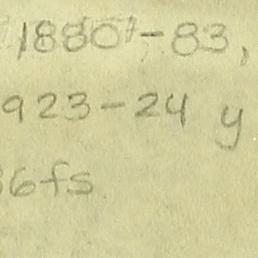 1880-83,
923-24 y
6fs